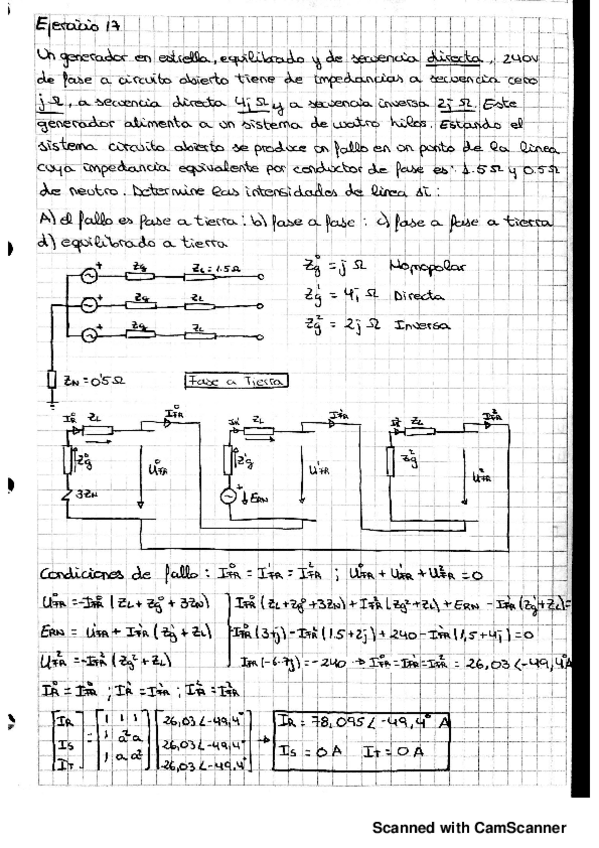 Ejercicio 17
Un generador en estrella, equilibrado y de secuencia directa, 240V
de fase a circuito abierto tiene de impedancias a secuencia cero
j Ω, a secuencia directa 4j Ω y a secuencia inversa 2j Ω. Este
generador alimenta a un sistema de cuatro hilos. Estando el
sistema circuito abierto se produce un fallo en un punto de la linea
cuya impedancia equivalente por conductor de fase es: 1.5Ω y 0.5Ω
de neutro. Determine las intensidades de linea si:
A) el fallo es fase a tierra: b) fase a fase: c) fase a fase a tierra
d) equilibrado a tierra
Zg ZL = 1.5Ω Zg⁰ = j Ω Homopolar
Zg ZL Zg¹ = 4j Ω Directa
Zg ZL Zg² = 2j Ω Inversa
ZN = 0'5Ω Fase a Tierra
IR⁰ ZL IFR⁰ IR¹ ZL IFR¹ IR² ZL IFR²
Zg⁰ UFR⁰ Zg¹ UFR¹ Zg² UFR²
3ZN ERN
Condiciones de fallo: IFR⁰ = IFR¹ = IFR² ; UFR⁰ + UFR¹ + UFR² = 0
UFR⁰ = -IFR⁰ (ZL + Zg⁰ + 3ZN) IFR⁰ (ZL + Zg⁰ + 3ZN) + IFR² (Zg² + ZL) + ERN - IFR¹ (Zg¹ + ZL) =
ERN = UFR¹ + IFR¹ (Zg¹ + ZL) IFR⁰ (3+j) - IFR² (1.5+2j) + 240 - IFR¹ (1,5+4j) = 0
UFR² = -IFR² (Zg² + ZL) IFR (-6-7j) = -240 → IFR⁰ = IFR¹ = IFR² = 26,03 ∠-49,4° A
IR⁰ = IFR⁰ ; IR¹ = IFR¹ ; IR² = IFR²
IR 1 1 1 26,03 ∠-49,4° IR = 78,095 ∠-49,4° A
IS = 1 a² a 26,03 ∠-49,4° → IS = 0 A IT = 0 A
IT 1 a a² 26,03 ∠-49,4°
Scanned with CamScanner